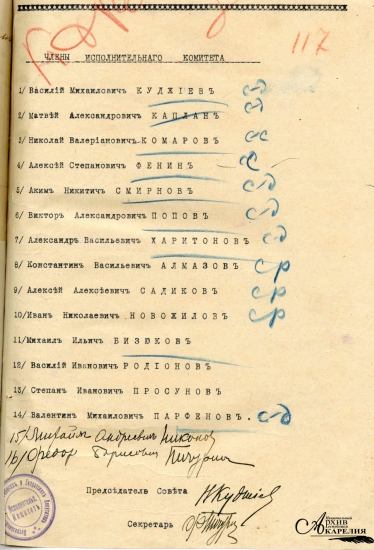 117
ЧЛЕНЫ ИСПОЛНИТЕЛЬНАГО КОМИТЕТА
1/ Василій Михаиловичъ КУДЖІЕВЪ с-д
2/ Матвѣй Александровичъ КАПЛАНЪ с-д
3/ Николай Валеріановичъ КОМАРОВЪ
4/ Алексѣй Степановичъ ФЕНИНЪ
5/ Акимъ Никитичъ СМИРНОВЪ с-д
6/ Викторъ Александровичъ ПОПОВЪ с-д
7/ Александръ Васильевичъ ХАРИТОНОВЪ с-д
8/ Константинъ Васильевичъ АЛМАЗОВЪ с-р
9/ Алексѣй Алексѣевичъ САДИКОВЪ с-р
10/ Иванъ Николаевичъ НОВОЖИЛОВЪ с-р
11/ Михаилъ Ильичъ БИЗЮКОВЪ
12/ Василій Ивановичъ РОДІОНОВЪ
13/ Степанъ Ивановичъ ПРОСУНОВЪ
14/ Валентинъ Михаиловичъ ПАРФЕНОВЪ. с-д
15/ Михаилъ Андреевичъ
16/ Борисовичъ
Предсѣдатель Совѣта
Секретарь
Национальный
АРХИВ
КАРЕЛИЯ